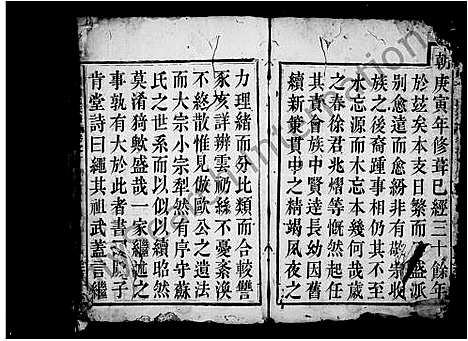 朝庚寅年修葺已經三十餘年
於茲矣本支日繁而 盛派
別愈遠而愈紛非有敬宗收
族之後裔踵事相仍其不至
水忘源而木忘本幾何哉戊
之春徐君兆熠等慨然起任
其責會族中賢達長幼因舊
續新彙貫中之精竭夙夜之
力理緒而分比類而合較讐
豕亥詳辨雲礽絲不憂紊渙
不終散惟見倣歐公之遺法
而大宗小宗犁然有序守蘇
氏之世系而以似以續昭然
莫淆猗歟盛哉一家繼述之
事孰有大於此者書 子
肯堂詩曰繩其祖武蓋言繼